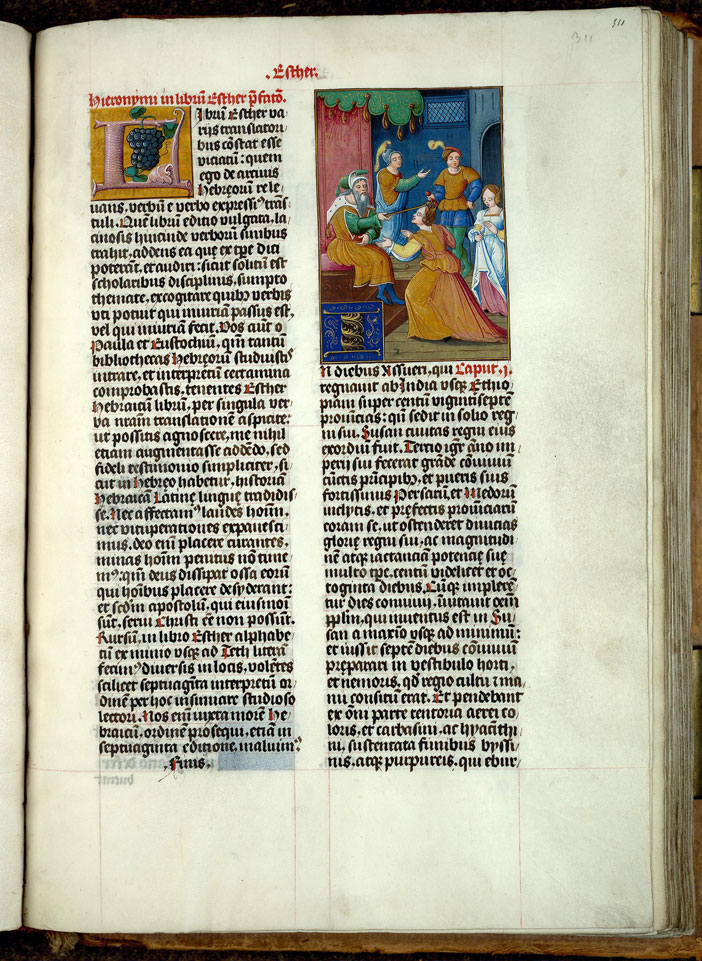 311
311
Esther.
Hieronymi in librū Esther p̄fatō.
Librū Esther va⸗
riis translatori⸗
bus cōstat esse
viciatū: quem
ego de arcivis
Hebręorum rele⸗
vans, verbū e verbo expressi⁹ trās⸗
tuli. Quē librū editio vulgata, la⸗
ciniosis hincinde verborū sinibus
trahit, addens ea que ex tp̄e dici
poterāt, et audiri: sicut solitū est
scholaribus disciplinis, sumpto
themate, excogitare quibꝫ verbis
vti potuit qui iniuriam passus est,
vel qui iniuriā fecit. Vos aūt o
Paula et Eustochiū, qm̄ tantū
bibliothecas Hebręorū studuistꝭ
intrare, et interpretū certamina
comprobastis, tenentes Esther
Hebraicū librū, per singula ver⸗
ba nr̄am translationē aspicite:
ut possitis agnoscere, me nihil
etiam augmentasse addēdo, sed
fideli testimonio simpliciter, si⸗
cut in Hebręo habetur, historiā
Hebraicā Latinę linguę tradidis⸗
se. Nec affectam⁹ laudes hoīm,
nec vituperationes expavesci⸗
mus. deo enī placere curantes,
minas hoīm penitus nō time⸗
m⁹: qm̄ deus dissipat ossa eorū
qui hoībus placere desyderant:
et scd̄m apostolū, qui eiusmōi
sūt, servi Christi eē non possūt.
Rursū, in libro Esther alphabe⸗
tū ex minio usqꝫ ad Teth literā
fecim⁹ diversis in locis, volētes
scilicet septuaginta interpretū or⸗
dinē per hoc insinuare studioso
lectori. Nos enī iuxta morē He⸗
braicū, ordinē prosequi, etiā in
septuaginta editione, maluim⁹.
Finis.
In diebus Assueri, qui Caput. i.
regnavit ab India usqꝫ Ethio⸗
piam super centū viginti septē
provīcias: qn̄ sedit in solio reg⸗
ni sui. Susan civitas regni eius
exordiū fuit. Tertio igr̄ āno im⸗
perii sui fecerat grāde cōviviū
cūctis pr̄ncipibꝫ, et pueris suis
fortissimis Persarū, et Medorū
inclytis, et pręfectis provīciarū
coram se, ut ostenderet divicias
glorię regni sui, ac magnitudi⸗
nē atqꝫ iactanciā potencię suę
multo tp̄e. centū videlicet et oc⸗
toginta diebus. Cūqꝫ implerē⸗
tur dies convivii, īvitavit oēm
pplm̄, qui inventus est in Su⸗
san a maxīo usqꝫ ad minimū:
et iussit septē diebus cōviviū
pręparari in vestibulo horti,
et nemoris, qd̄ regio cultu z ma⸗
nu consitū erat. Et pendebant
ex ōni parte tentoria aerei co⸗
loris, et carbasini, ac hyacinthi⸗
ni, sustentata funibus byssi⸗
nis, atqꝫ purpureis, qui ebur⸗